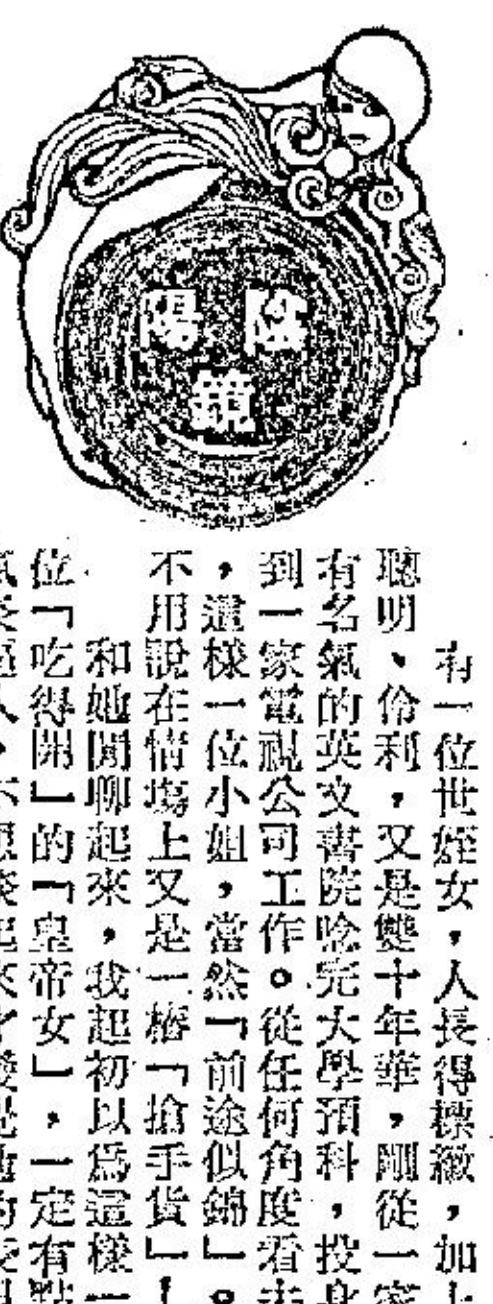 陰陽鏡
有一位世姪女,人長得標緻,加上
聰明、伶利,又是雙十年華,剛從一家
有名氣的英文書院唸完大學預科,投身
到一家電視公司工作。從任何角度看去
,這樣一位小姐,當然「前途似錦」。
不用說在情塲上又是一樁「搶手貨」!
和她閒聊起來,我起初以爲這樣一
位「吃得開」的「皇帝女」,一定有點